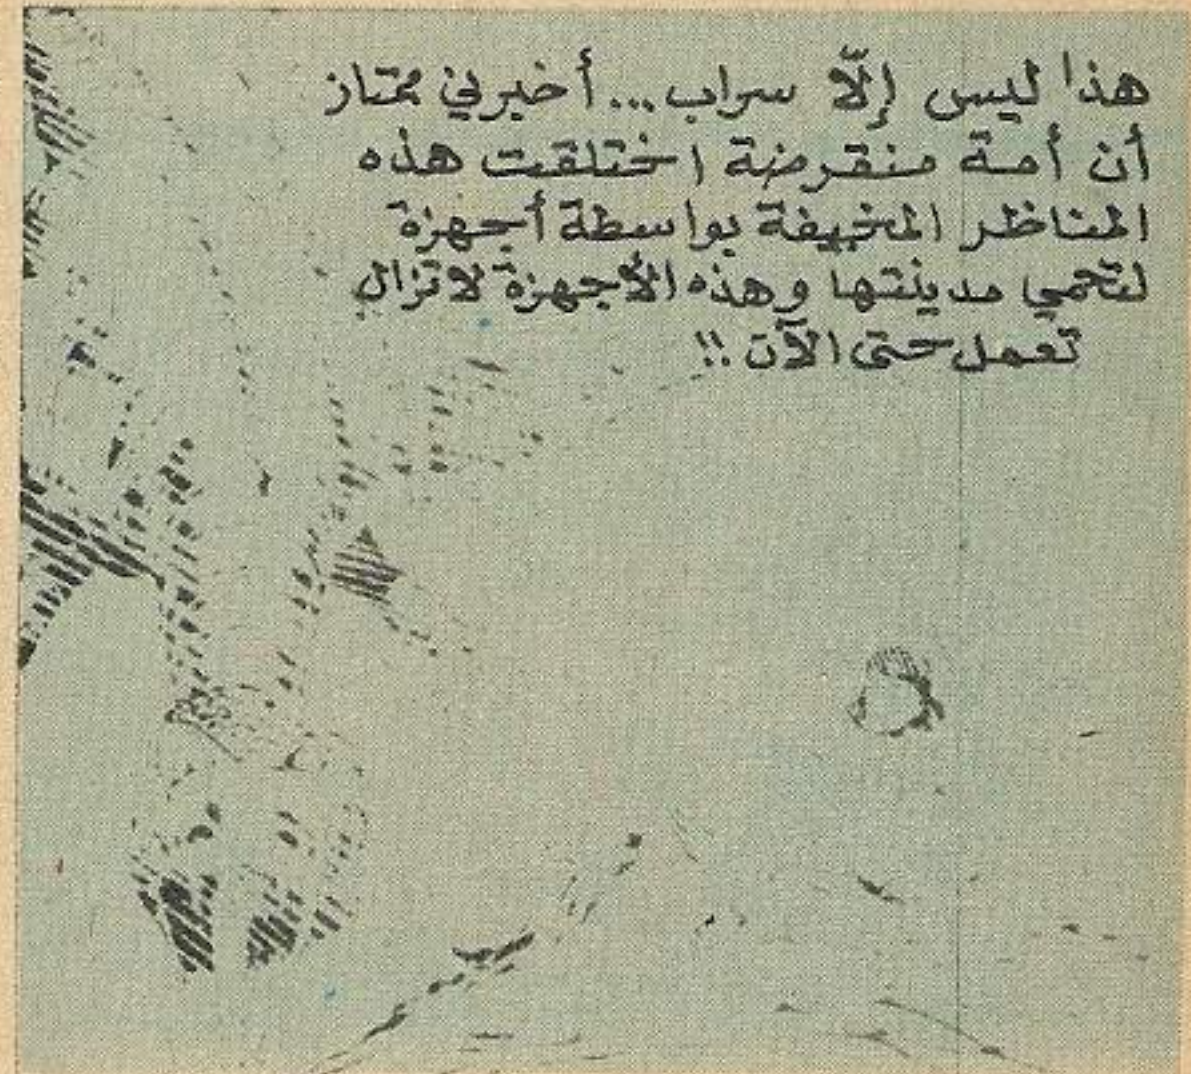 هذا ليس إلّا سراب... أخبرني ممتاز
أن أمة منقرضة اختلقت هذه
المناظر المخيفة بواسطة أجهزة
لتحمي مدينتها وهذه الأجهزة لاتزال
تعمل حتى الآن !!